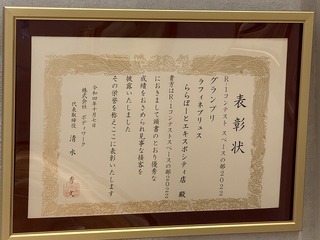 表彰状
R-1コンテスト スペースの部2022
グランプリ
ラフィネプリュス
ららぽーとエキスポシティ店 殿
貴方はR-1コンテストスペースの部2022
におきまして頭書のとおり優秀な
成績をおさめられ見事な接客を
披露いたしました
その栄誉を称えここに表彰いたします
令和四年十月七日
株式会社 ボディワーク
代表取締役 清水 秀文